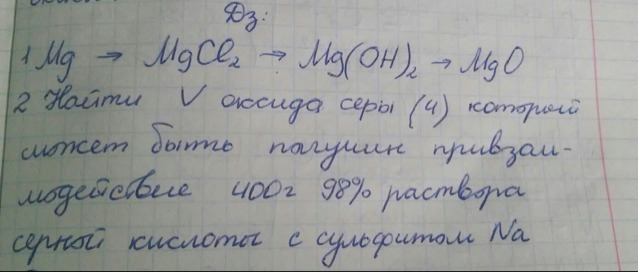 Дз:
1 Mg → MgCl₂ → Mg(OH)₂ → MgO
2 Найти V оксида серы (4) который
может быть получин привзаи-
модействие 400г 98% раствора
серной кислоты с сульфитом Na